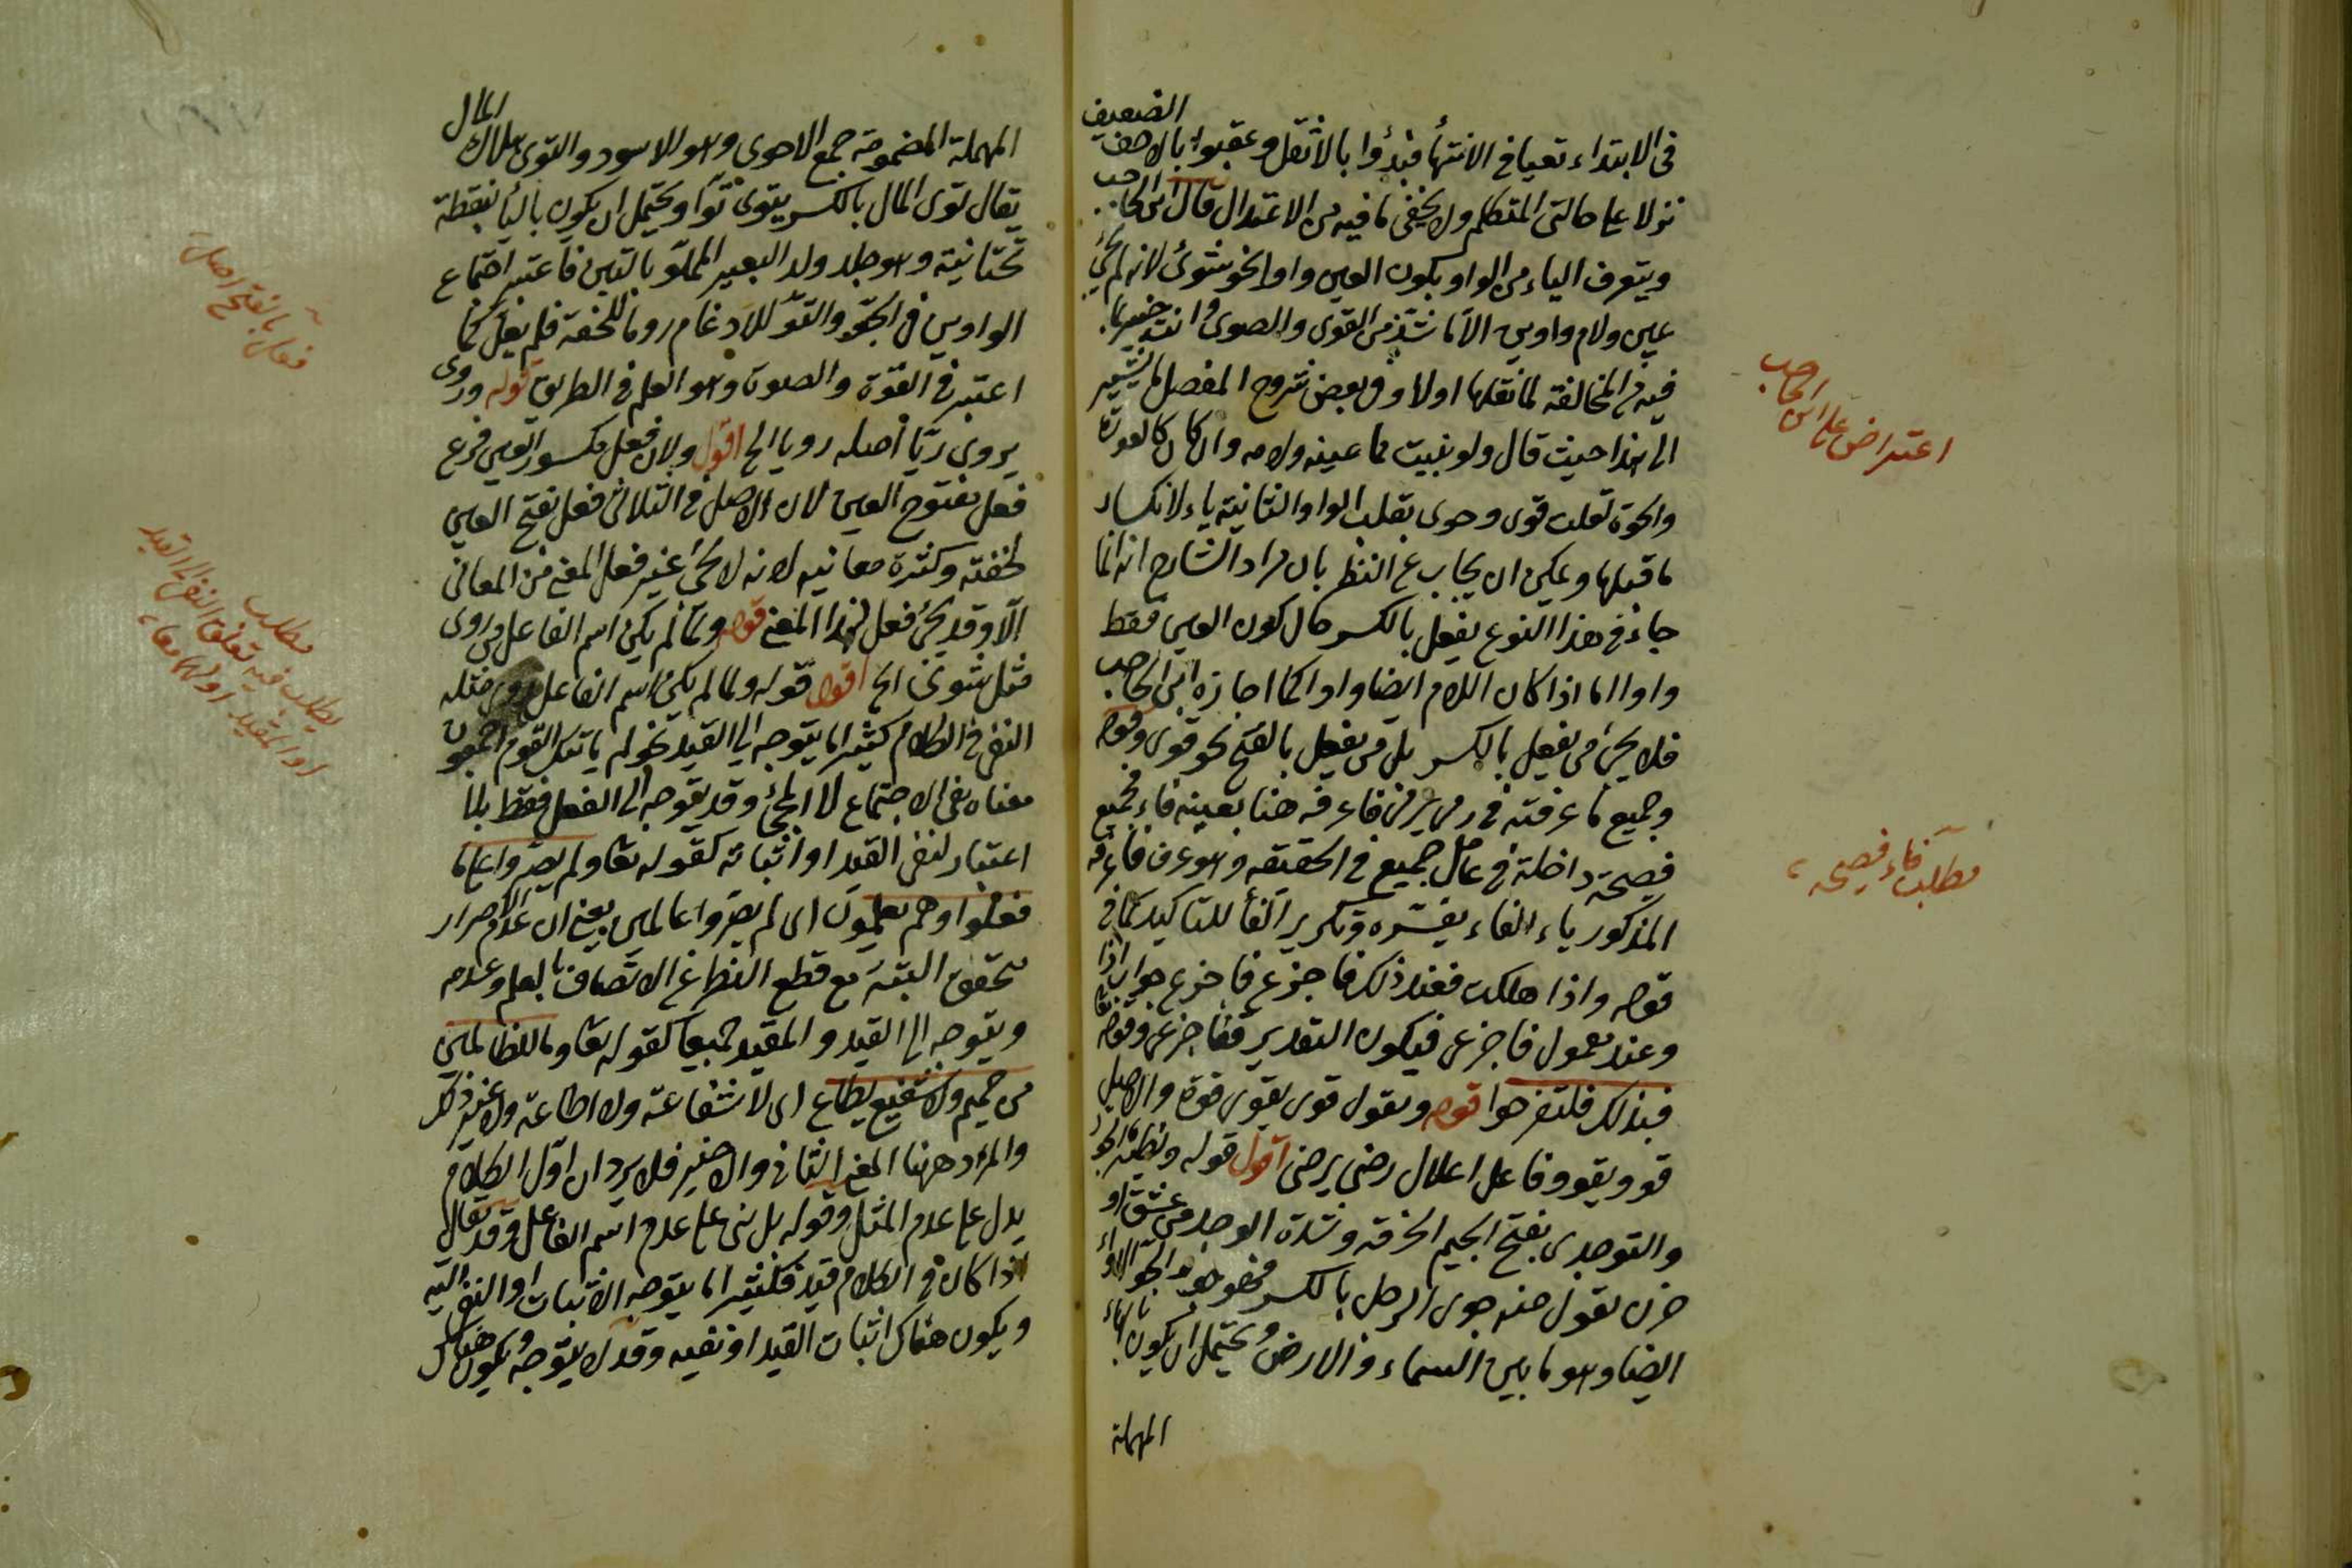 في الابتداء تعيا في الانتهاء فبدؤا بالأثقل وعقبوا بالاخف الضعيف
نزلا على حالتى المتكلم ولا يخفى ما فيه من الاعتدال قال ابن الحاجب
ويتعرف الياء من الواو بكون العين واوا نحو شوى لانه لم يجئ
عين ولام واوين الا ما شذ من القوى والصوى وانت خبير بما
فيه من المخالفة لما نقلها اولا وفى بعض شروح المفصل ما يشير
الى هذا حيث قال ولو بنيت مما عينه ولامه واو كان كالقوة
والحوة لقلت قوى وحوى بقلب الواو الثانية ياء لانكسار
ما قبلها ويمكن ان يجاب عن النظر بان مراد الشارح انه انما
جاء فى هذا النوع يفعل بالكسر حال كون العين فقط
واوا اما اذا كان اللام ايضا واوا كما اجازه ابن الحاجب
فلا يجئ من يفعل بالكسر بل من يفعل بالفتح نحو قوى وقوله
وجميع ما عرفته فى رمى يرمى فاعرفه هنا بعينه فاء فجميع
فصيحة داخلة فى عامل جميع فى الحقيقة وهو عرف فاعرفه
المذكور ياء الفاء يفسره وتكرير الفاء للتاكيد كما فى
قوله واذا هلكت فعند ذلك فاجزعى فاجزعى جواب اذا
وعند معمول فاجزعى فيكون التقدير فاجزعى وقوله تعا
فبذلك فلتفرحوا قوله ويقول قوى يقوى قوة والاصل
قوو يقوو فاعل اعلال رضى يرضى اقول قوله ونظيره الجو
والتوجدى بفتح الجيم الحرقة وشدة الوجد من عشق او
حزن تقول منه جوى الرجل بالكسر فهو جو والجو الهواء
ايضا وهو ما بين السماء والارض ويحتمل ان يكون بالحاء
المهملة
اعتراض على ابن الحاجب
مطلب فاء فصيحه
المهملة المضمومة جمع الاحوى وهو الاسود والتوى هلاك المال
يقال توى المال بالكسر يتوى توا ويحتمل ان يكون بالياء بنقطة
تحتانية وهو جلد ولد البعير المملو بالتبن فاعتبر اجتماع
الواوين فى الحو والتو للادغام روما للخفة فلم يعل كما
اعتبر فى القوة والصوة وهو العلم فى الطريق قوله وروى
يروى ريا اصله رويا الخ اقول ولان فعل مكسور العين فرع
فعل مفتوح العين لان الاصل فى الثلاثى فعل بفتح العين
لخفته وكثرة معانيه لانه لا يجئ غير فعل لمعنى من المعانى
الا وقد يجئ فعل لهذا المعنى قوله ولما لم يكن اسم الفاعل من روى
مثل شوى الخ اقول قوله ولما لم يكن اسم الفاعل من روى مثله
النفى فى الكلام كثيرا ما يتوجه الى القيد نحو لم ياتك القوم اجمعون
معناه نفى الاجتماع لا المجئ وقد يتوجه الى الفعل فقط بلا
اعتبار لنفى القيد او اثباته كقوله تعا ولم يصروا على ما
فعلوا وهم يعلمون اى لم يصروا عالمين يعنى ان عدم الاصرار
متحقق البتة مع قطع النظر عن الاتصاف بالعلم وعدمه
ويتوجه الى القيد والمقيد جميعا كقوله تعا وما للظالمين
من حميم ولا شفيع يطاع اى لا شفاعة ولا اطاعة ولا غير ذلك
والمراد ههنا المعنى الثانى والاخير فلا يرد ان اول الكلام
يدل على عدم المثل وقوله بل نى على عدم اسم الفاعل وقد يقال
اذا كان فى الكلام قيد فكثيرا ما يتوجه الاثبات او النفى اليه
ويكون هناك اثبات القيد او نفيه وقد لا يتوجه ويكون هناك
فعل بالفتح اصل
مطلب
يطلب فيه تعلق النفى الى القيد
او المقيد او لهما معا